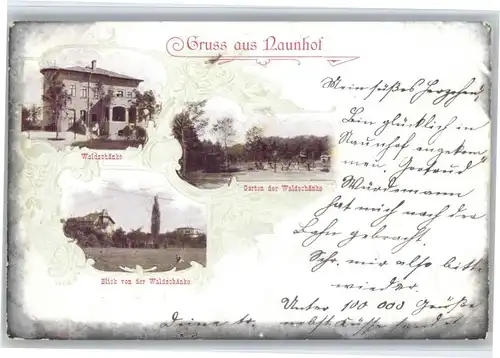 Gruss aus Naunhof
Waldschänke
Garten der Waldschänke
Blick von der Waldschänke
Mein süßes Herzchen
Bin glücklich in
Naunhof angekom
men. Gertrud
Würdemann
hat mich nach der
Bahn gebracht.
mir also bitte
wieder.
Unter 100 000 Grüße
nebst Küsse sendet
Deine tr.